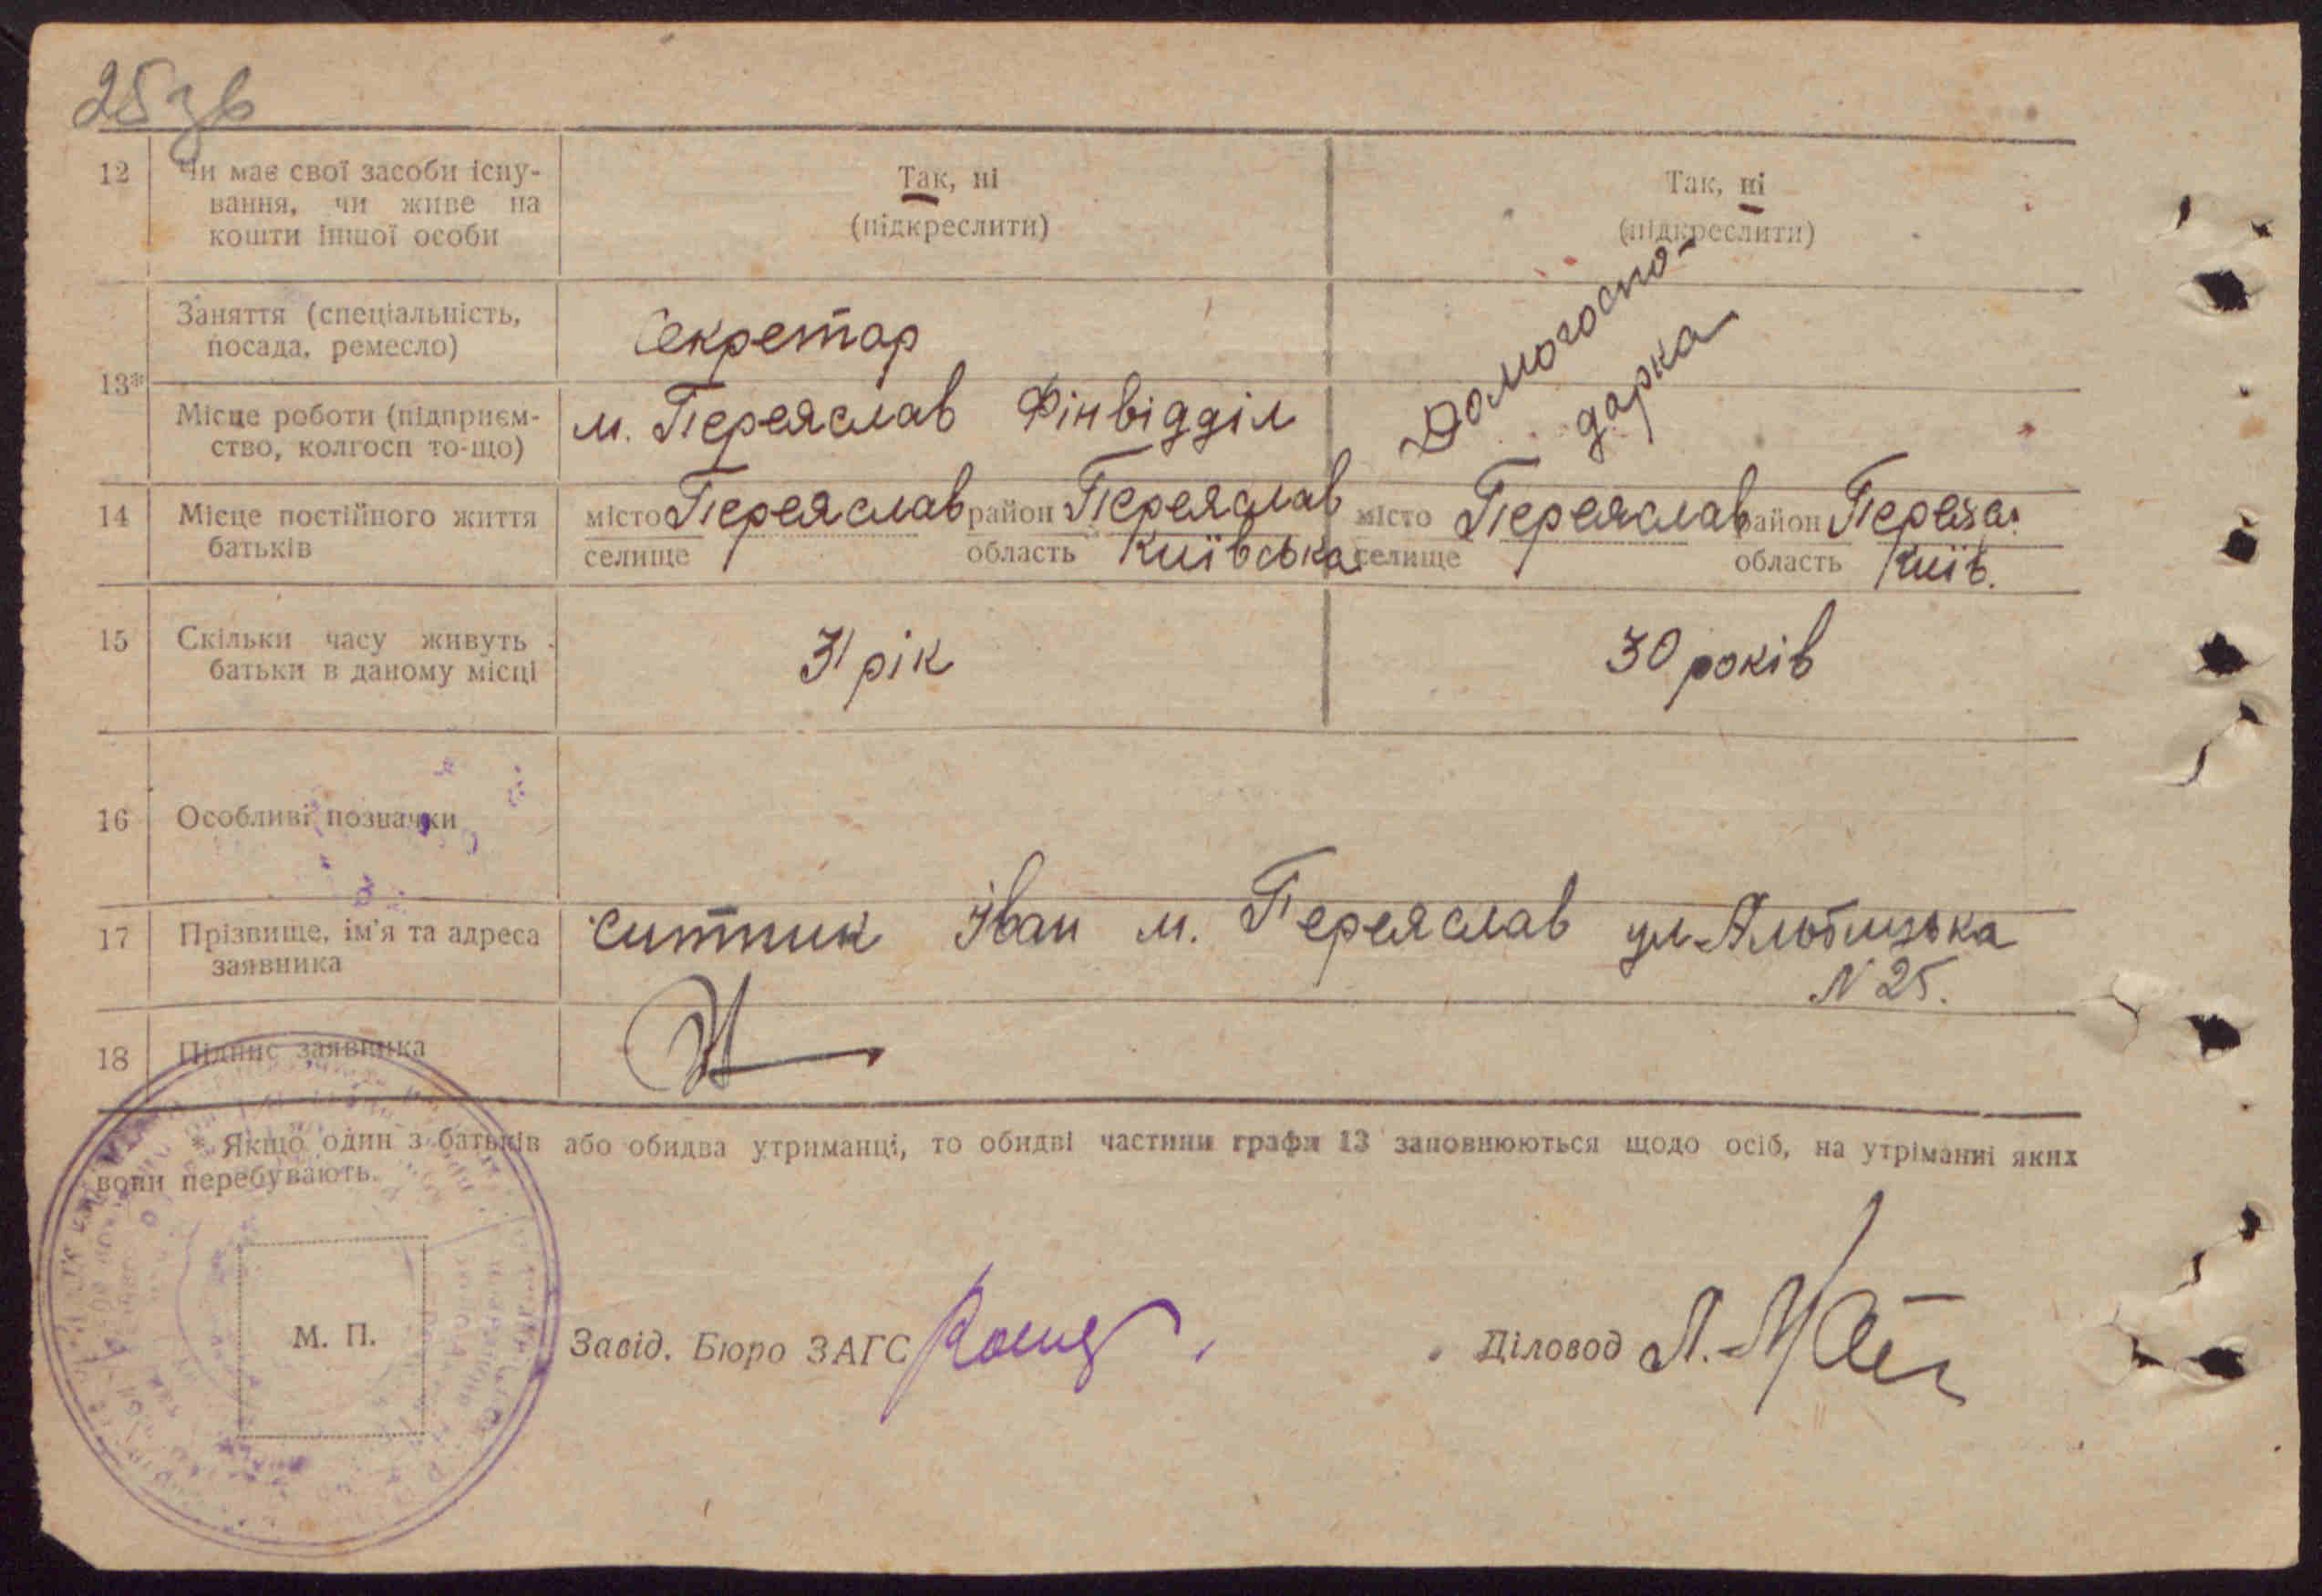 25зв
12 Чи має свої засоби існу-
вання, чи живе на
кошти іншої особи
Так, ні
(підкреслити)
Так, ні
(підкреслити)
13*
Заняття (спеціальність,
посада, ремесло)
Секретар
Домогоспо-
дарка
Місце роботи (підприєм-
ство, колгосп то-що)
м. Переяслав Фінвідділ
14 Місце постійного життя
батьків
місто Переяслав район Переяслав
селище область Київська
місто Переяслав район Перея.
селище область Київ.
15 Скільки часу живуть
батьки в даному місці
31 рік
30 років
16 Особливі позначки
17 Прізвище, ім'я та адреса
заявника
Ситник Іван м. Переяслав ул.
N 25.
18 Підпис заявника
* Якщо один з батьків або обидва утриманці, то обидві частини графи 13 заповнюються щодо осіб, на утріманні яких
вони перебувають.
М. П.
Завід. Бюро ЗАГС
Діловод Л.